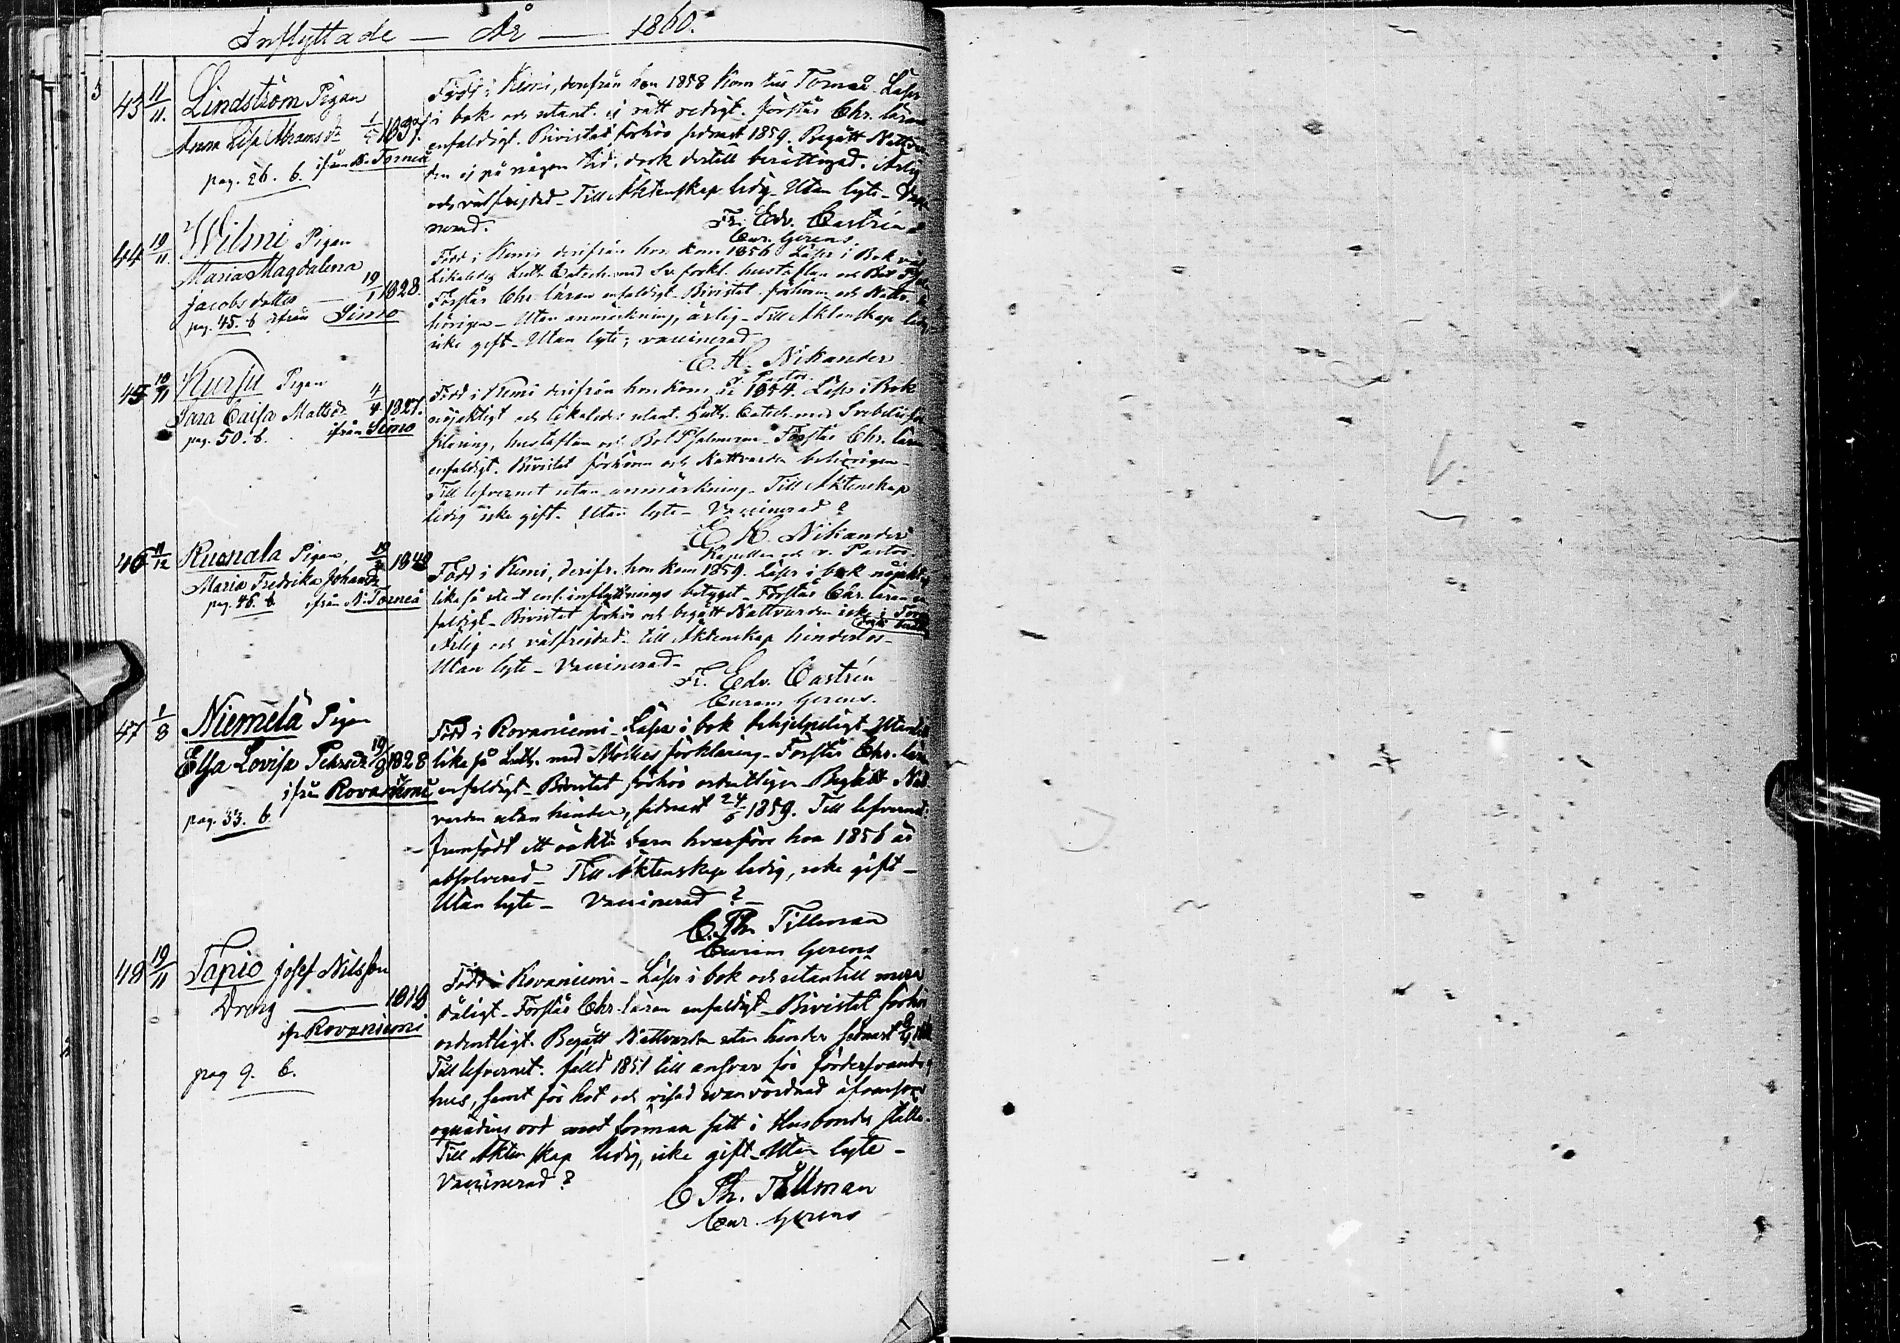 Inflyttade — År — 1860.
43 11/11 Lindström Pigan
Anna Lisa Abramsdr 1837.
ifrån N. Torneå
pag. 26. b.
Född i Kemi, derifrån hon 1858 kom till Torneå. Läser
i bok och utant. ej rätt redigt. förstår Chr. läran
enfaldigt. Bivistat förhör sednast 1859. Begått Nattvar-
den ej på någon tid, dock dertill berättigad. Ärlig
och välfrejdad. Till Äktenskap ledig. Utan lyte. Vacci-
nerad.
Fr. Edv. Castrén
Cur. Gerens
44 19/11 Wilmi Pigan
Maria Magdalena
Jacobsdotter 19/1 1828.
pag. 45. b ifrån Simo
Född i Kemi derifrån hon kom 1856. Läser i Bok
likaledes Luth. Catech. med Sv. förkl. hustaflan och Bot
Förstår Chr. läran enfaldigt. Bivistat förhören och Nattv.
hörigen. Utan anmärkning, ärlig. Till Äktenskap ledig
icke gift. Utan lyte; vaccinerad
E. H. Nikander
v. Pastor
45 Kurju Pigan
Sara Caisa Mattsdr 4/4 1827.
pag. 50. b. ifrån Simo
Född i Kemi derifrån hon kom 1854. Läser i Bok
nöjaktigt och likaledes utant. Luth. Catech. med Svebelii för-
klaring, hustaflan och Bot Psalmerna. Förstår Chr. läran
enfaldigt. Bivistat förhören och Nattvarden behörigen.
Till lefvernet utan anmärkning. Till Äktenskap
ledig icke gift. Utan lyte. Vaccinerad?
E. H. Nikander
Kapellan och v. Pastor.
46 Ruonala Pigan 1840
Maria Fredrika Johansdr
pag. 46. b. ifrån N. Torneå
Född i Kemi, derifr. hon kom 1859. Läser i bok nöjaktigt
lika så utant enl. inflyttnings betyget. Förstår Chr. läran en-
faldigt. Bivistat förhör och begått Nattvarden icke i Torneå
Ärlig och välfrejdad. till Äktenskap hinderlös.
Utan lyte. Vaccinerad.
Fr. Edv. Castrén
Curam Gerens.
47 1/8 Niemelä Pigan
Elsa Lovisa Pehrsdr 1828
ifrån Rovaniemi
pag. 33. b.
Född i Rovaniemi. Läser i bok behjelpeligt. Utantill
lika så Luth. med Möllers förklaring. Förstår Chr. läran
enfaldigt. Bivistat förhör ordentligen. Begått Natt-
varden utan hinder, sednast 24/6 1859. Till lefvernet:
framfödt ett oäkta barn hvarföre hon 1856 är
absolverad. Till Äktenskap ledig, icke gift.
Utan lyte. Vaccinerad?
C. Th. Tillman
Curam Gerens
48 19/11 Tapio Josef Nilsson
Dräng 1818
ifr Rovaniemi
pag 9. b.
Född i Rovaniemi. Läser i bok och utantill mera
dåligt. Förstår Chr. läran enfaldigt. Bivistat förhör
ordentligt. Begått Nattvarden utan hinder sednast
Till lefvernet: fälld 1851 till ansvar för
hus, samt för hot och visad wanvördnad
oqvädins ord mot förman satt i Husbondes ställe.
Till Äktenskap ledig, icke gift. Utan lyte.
Vaccinerad?
C Th. Tillman
Cur. Gerens